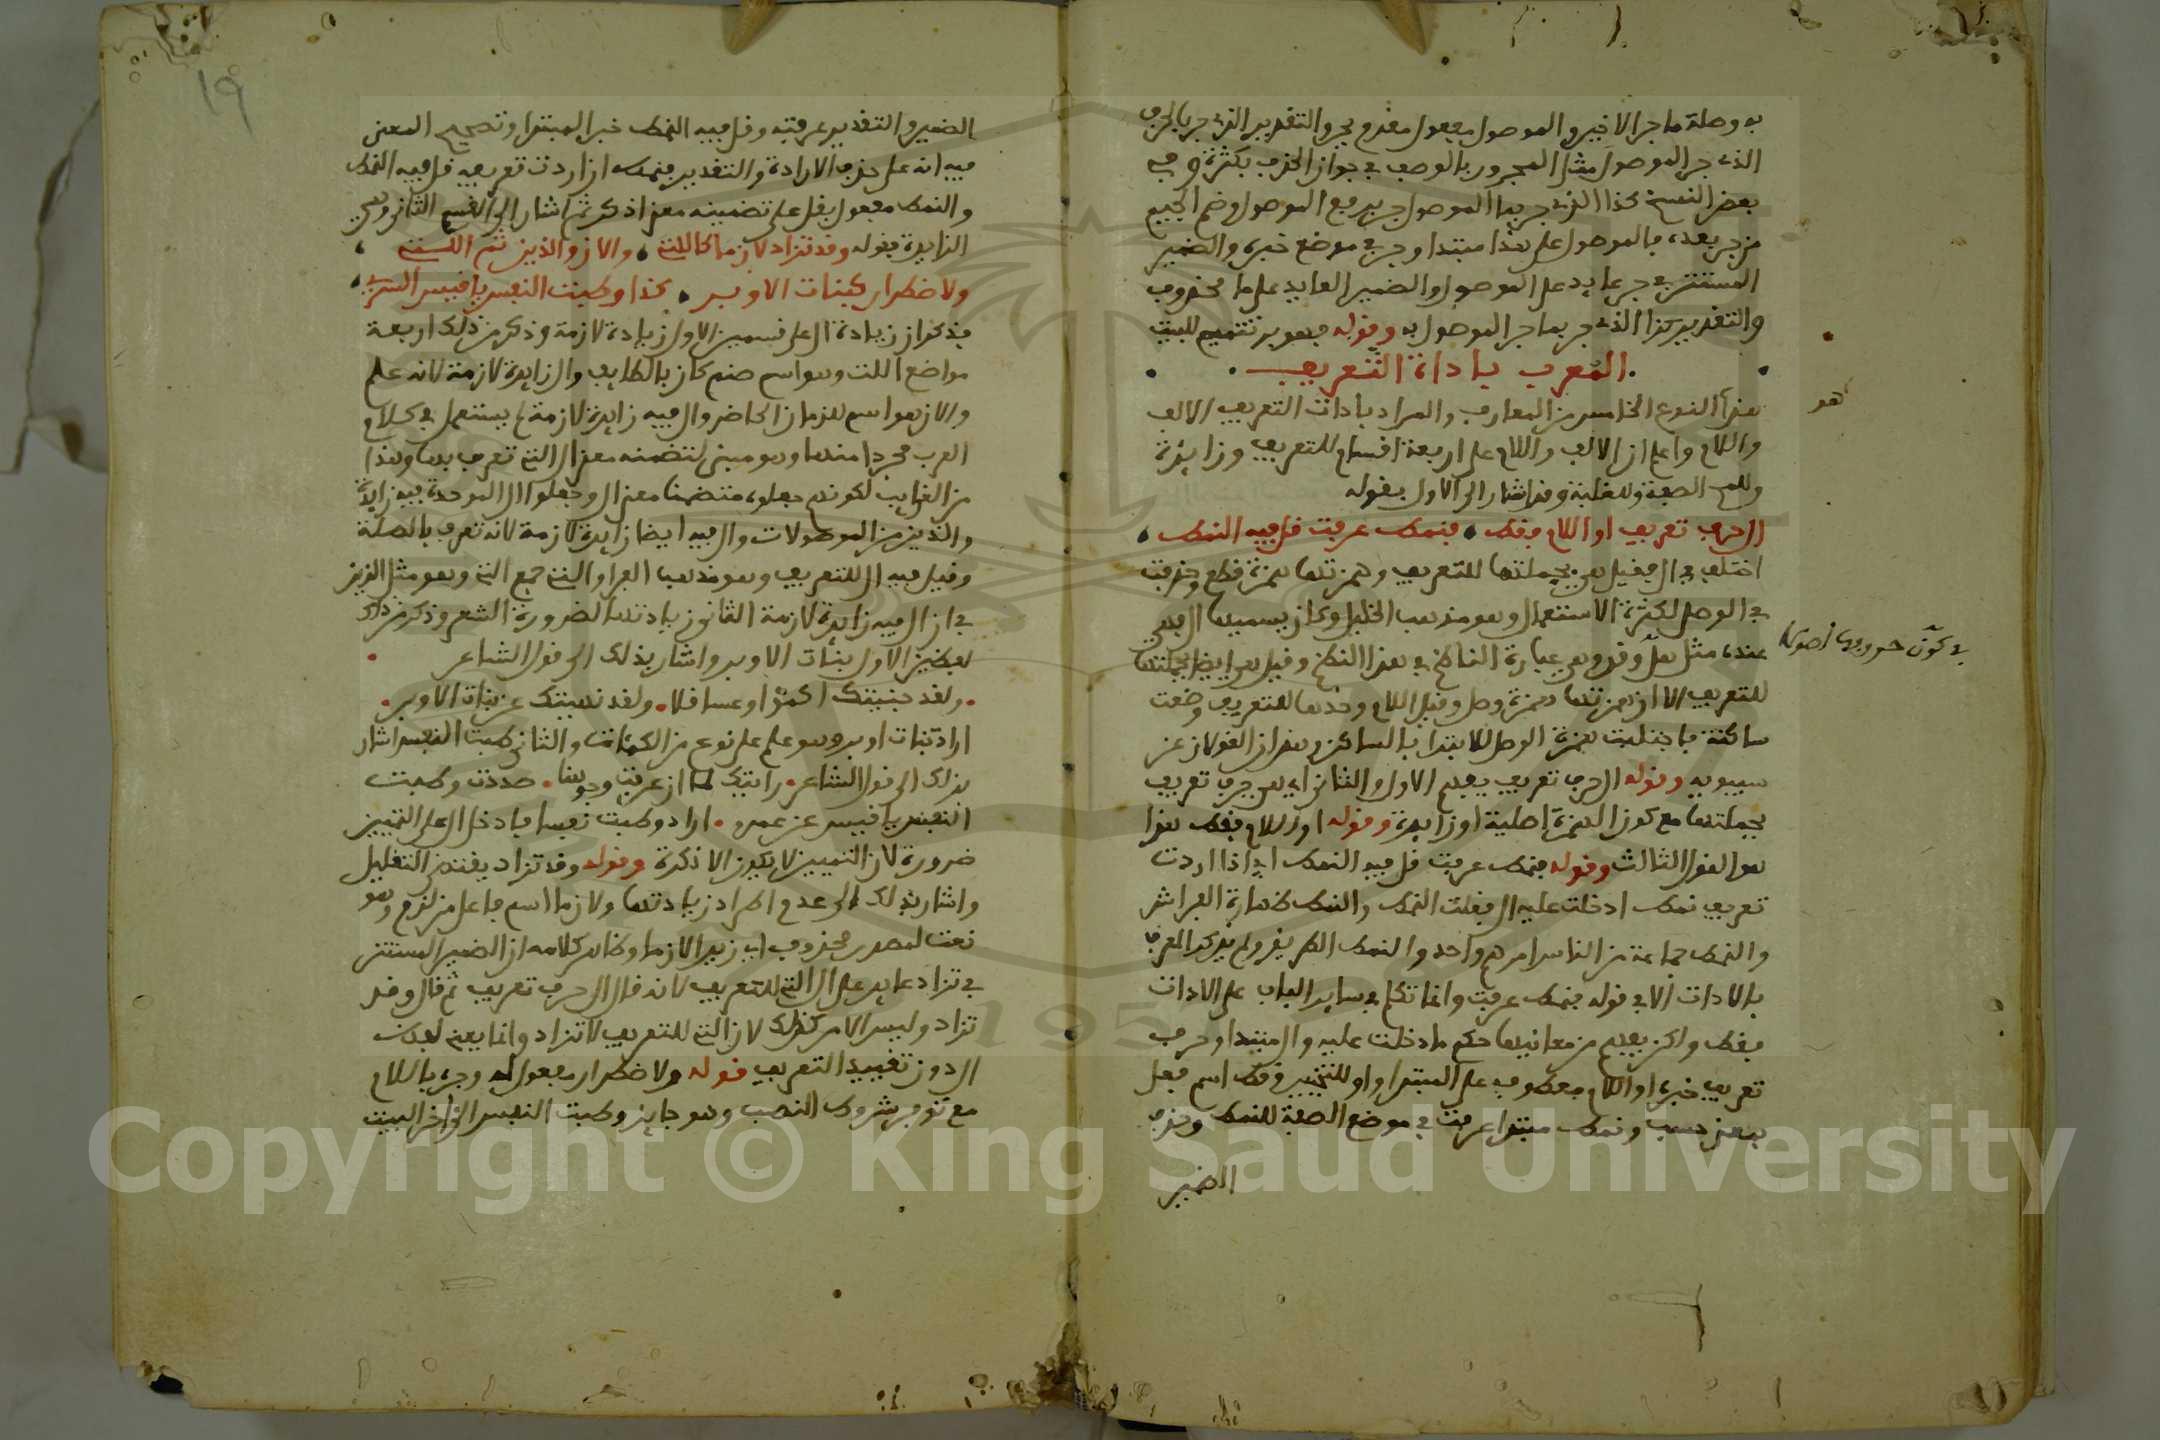 به وصلة ما جر الاخير والموصول مفعول مقدم بجر والتقدير الذي جر بالحرف
الذي جر الموصول مثل المجرور بالوصف في جواز الحذف بكثرة وفي
بعض النسخ كذا الذي جر بما الموصول جر برفع الموصول وضم الجيم
من جر بعده فالموصول على هذا مبتدا وجر في موضع خبره والضمير
المستتر في جر عايد على الموصول والضمير العايد على ما محذوف
والتقدير كذا الذي جر بما جر الموصول به وقوله فهو بر تتميم للبيت
المعرف باداة التعريف
هذا النوع الخامس من المعارف والمراد بادات التعريف الالف
هو
واللام واعلم ان الالف واللام على اربعة اقسام للتعريف وزايدة
وللمح الصفة وللغلبة وقد اشار الى الاول بقوله
ال حرف تعريف او اللام فقط فنمط عرفت قل فيه النمط
اختلف في ال فقيل هي بجملتها للتعريف وهمزتها همزة قطع وحذفت
في الوصل لكثرة الاستعمال وهو مذهب الخليل وكان يسميها ال فهي
عنده مثل هل وقد وهي عبارة الناظم في هذا النظم وقيل هي ايضا بجملتها
في كون حروفها اصولا
للتعريف الا ان همزتها همزة وصل وقيل اللام وحدها للتعريف وضعت
ساكنة فاجتلبت همزة الوصل للابتدا بالساكن وهذان القولان عن
سيبويه وقوله ال حرف تعريف يفهم الاول والثاني اي هي حرف تعريف
بجملتها مع كون الهمزة اصلية او زايدة وقوله او اللام فقط هذا
هو القول الثالث وقوله فنمط عرفت قل فيه النمط اي اذا اردت
تعريف نمط ادخلت عليه ال فقلت النمط والنمط ظهارة الفراش
والنمط جماعة من الناس امرهم واحد والنمط الطريق ولم يذكر المعرف
بالادات الا في قوله فنمط عرفت وانما تكلم في ساير الباب على الادات
فقط ولكن يفهم من معانيها حكم ما دخلت عليه وال مبتدا وحرف
تعريف خبره او اللام معطوف على المبتدا واو للتخيير وقط اسم فعل
بمعنى حسب ونمط مبتدا عرفت في موضع الصفة للنمط وحذف
الضمير
١٩
الضمير والتقدير عرفته وقل فيه النمط خبر المبتدا وتصحيح المعنى
فيه انه على حذف الارادة والتقدير فنمط ان اردت تعريفه قل فيه النمط
والنمط مفعول بقل على تضمينه معنى اذكر ثم اشار الى القسم الثاني وهي
الزايدة بقوله وقد تزاد لازما كاللات والان والذين ثم اللات
ولاضطرار كبنات الاوبر كذا وطبت النفس يا قيس السري
فذكر ان زيادة ال على قسمين الاول زيادة لازمة وذكر من ذلك اربعة
مواضع اللت وهو اسم صنم كان بالطايف وال زايدة لازمة لانه علم
والان هو اسم للزمان الحاضر وال فيه زايدة لازمة لم يستعمل في كلام
العرب مجردا منها وهو مبني لتضمنه معنى ال التي تعرف بها وهذا
من الغرايب لكونهم جعلوه متضمنا معنى ال وجعلوا ال الموجودة فيه زايدة
والذين من الموصولات وال فيه ايضا زايدة لازمة لانه تعرف بالصلة
وقيل فيه ال للتعريف وهو مذهب الفرا والتي جمع التي وهو مثل الذين
في ان ال فيه زايدة لازمة الثاني زيادتها لضرورة الشعر وذكر من ذلك
لفظين الاول بنات الاوبر واشار بذلك الى قول الشاعر
ولقد جنيتك اكمؤا وعساقلا ولقد نهيتك عن بنات الاوبر
اراد بنات اوبر وهو علم على نوع من الكمات والثاني طبت النفس اشار
بذلك الى قول الشاعر رايتك لما ان عرفت وجوهنا صددت وطبت
النفس يا قيس عن عمرو اراد وطبت نفسا فادخل ال على التمييز
ضرورة لان التمييز لا يكون الا نكرة وقوله وقد تزاد يقتضي التقليل
واشار بذلك الى عدم اطراد زيادتها ولازما اسم فاعل من لزم وهو
نعت لمصدر محذوف اي زيدا لازما وظاهر كلامه ان الضمير المستتر
في تزاد عايد على ال التي للتعريف لانه قال ال حرف تعريف ثم قال وقد
تزاد وليس الامر كذلك لان التي للتعريف لا تزاد وانما يعني لفظ
ال دون تقييد التعريف قوله ولاضطرار مفعول له وجره باللام
مع توفر شروط النصب وهو جايز وطبت النفس الى اخر البيت